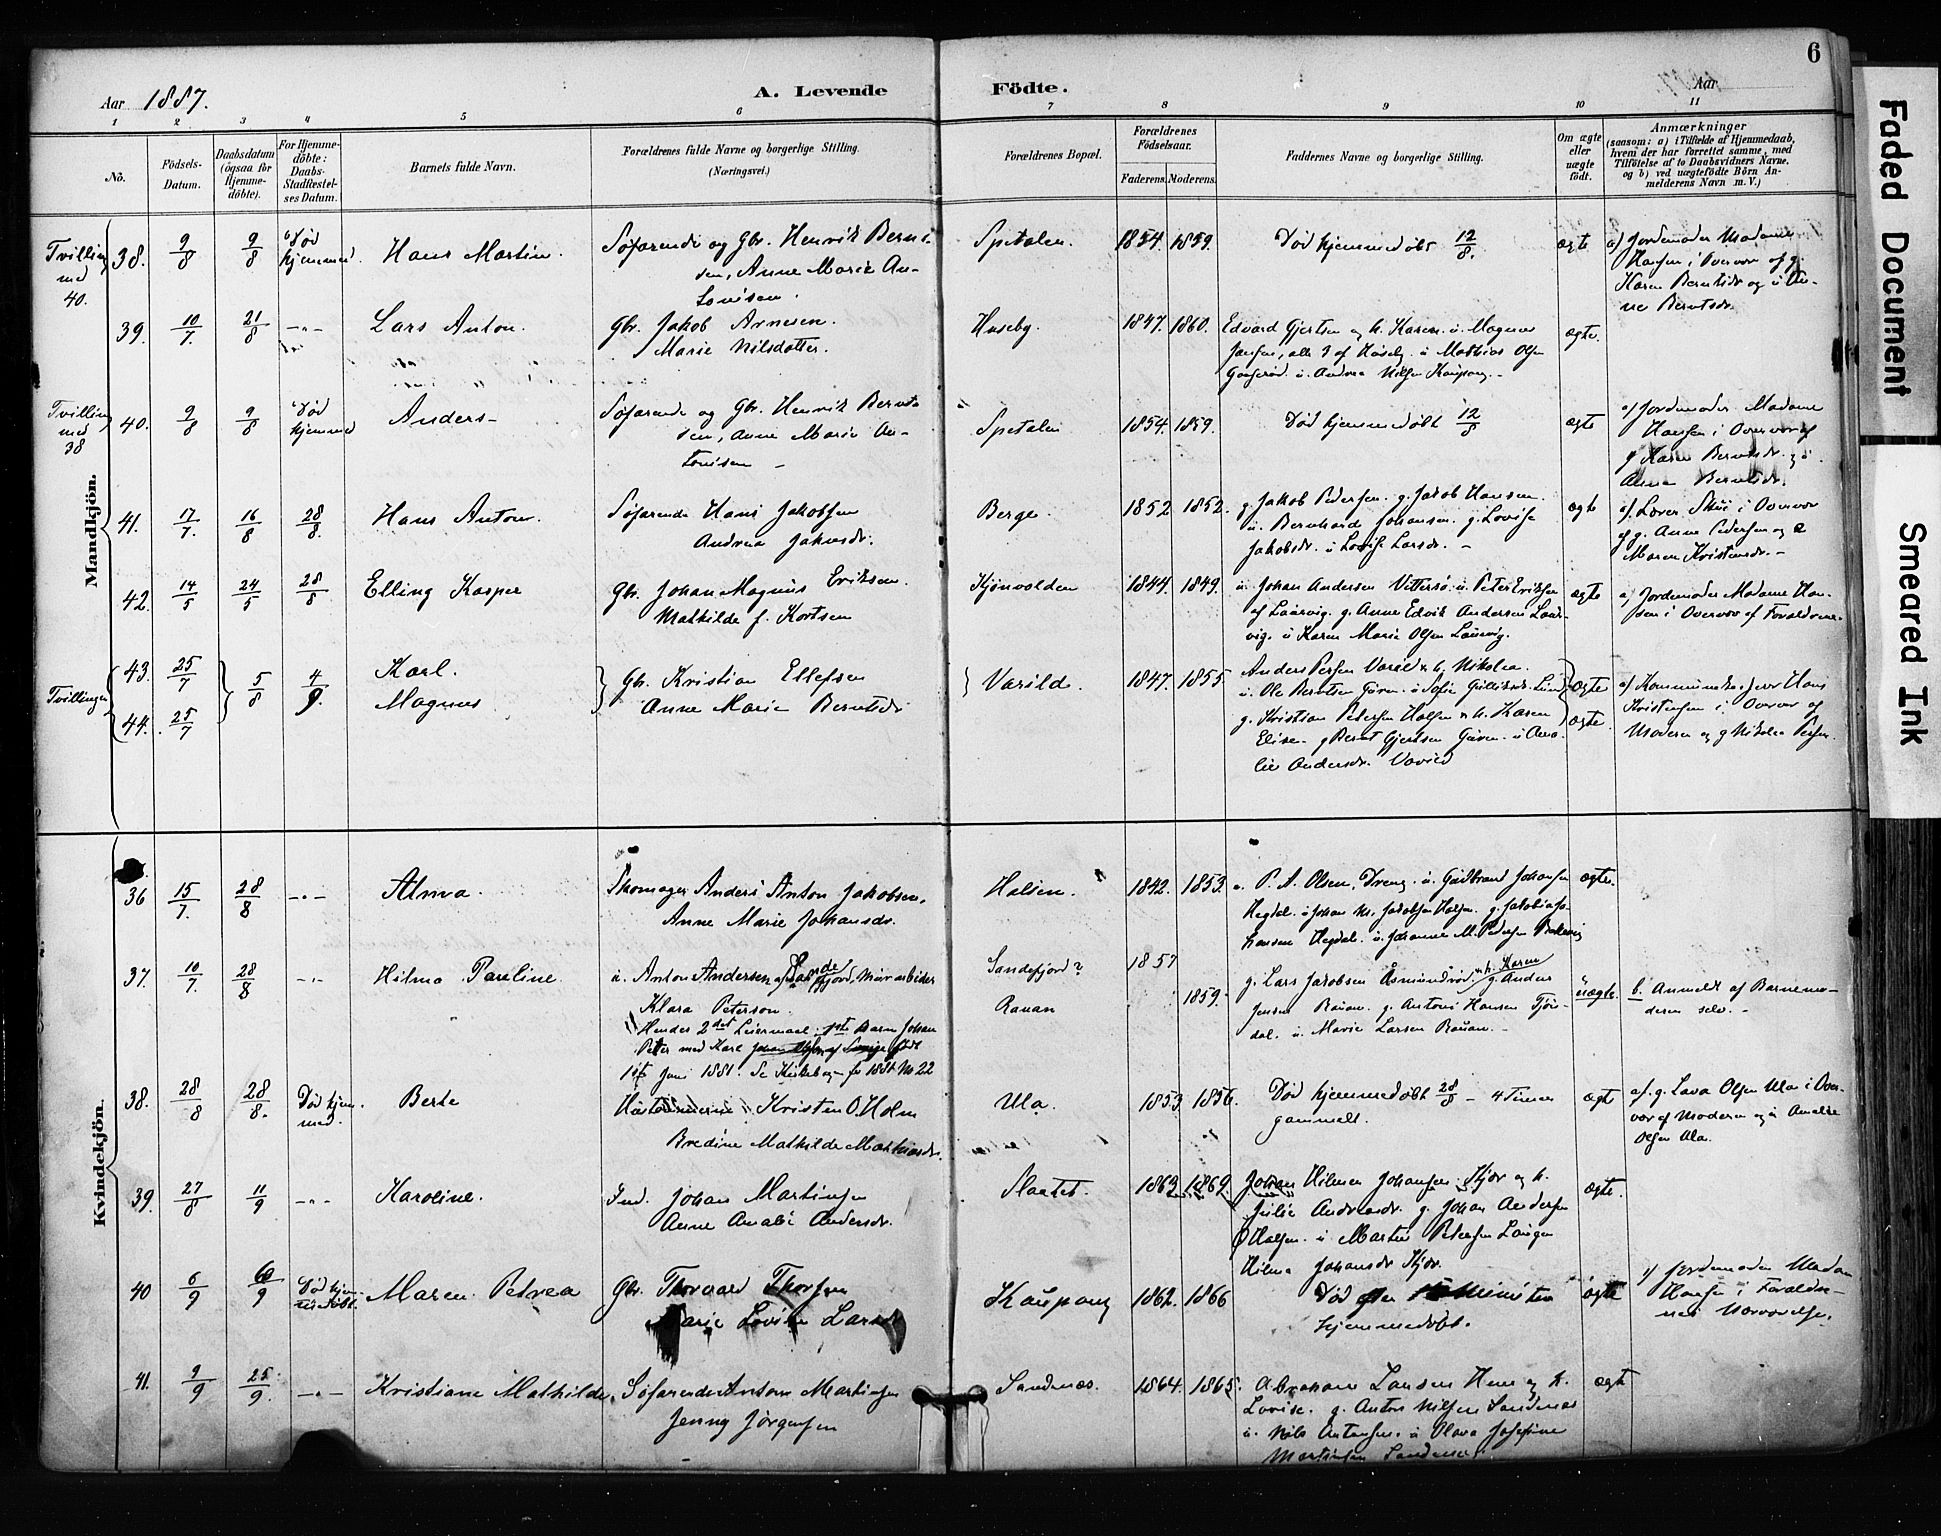 6
Aar 1887.
A. Levende Födte.
Aar
1 2 3 4 5 6 7 8 9 10 11
Nô.
Födsels-
Datum.
Daabsdatum
(ogsaa for
Hjemme-
döbte).
For Hjemme-
döbte:
Daabs-
Stadfæstel-
ses Datum.
Barnets fulde Navn.
Forældrenes fulde Navne og borgerlige Stilling.
(Næringsvei.)
Forældrenes Bopæl.
Forældrenes
Födselsaar.
Faderens. Moderens.
Faddernes Navne og borgerlige Stilling.
Om ægte
eller
uægte
födt.
Anmærkninger
(saasom: a) i Tilfælde af Hjemmedaab,
hvem der har forrettet samme, med
Tilföielse af to Daabsvidners Navne,
og b) ved uægtefödte Börn An-
melderens Navn m. V.)
Mandkjön.
Tvilling
med
40.
38. 9/8 9/8 Död
hjemmed
Hans Martin.
Söfarende og Gbr. Henrik Bernt-
sen, Anne Marie An-
tonisen.
Spetalen. 1854. 1859.
Död hjemmedöbt 12/8.
ægte
a) Jordemoder Madame
Hansen i Overvær af g.
Karen Berntsdr og u An-
ne Berntsdr.
39. 10/7. 21/8 -"-
Lars Anton.
Gbr. Jakob Arnesen.
Marie Nilsdatter.
Huseby. 1847. 1860.
Edvard Gjertsen og h. Karen. u. Magnus
Jensen, alle 3 af Huseby. u Mathias Olsen
Gonserød. u. Andrea Nilsen Kaupang. -
ægte.
Tvilling
med
38
40. 9/8 9/8 Död
hjemmed
Anders-
Söfarende og Gbr. Henrik Bernt-
sen, Anne Marie An-
tonisen -
Spetalen 1854. 1859.
Död hjemmedöbt 12/8
ægte
a) Jordemoder Madame
Hansen i Overvær af
g Karen Berntsdr. og u.
Anna Berntsdr.
41. 17/7. 16/8 28/8.
Hans Anton.
Söfarende Hans Jakobsen
Andrea Jakobsdr.
Berge. 1852 1852.
g. Jakob Pedersen. g. Jakob Hansen.
u. Bernhard Johansen. g. Lovise
Jakobsdr. u Lovise Larsdr. -
ægte
a). Lærer Skui i Overvær
af g. Anne Pedersen og
Maren Kristensdr. -
42. 14/5 24/5 28/8
Elling Kasper
Gbr. Johan Magnus Eriksen.
Mathilde f. Kortsen
Kjönvolden 1844. 1849.
u. Johan Andersen Vittersö. u. Peter Eriksen
af Laurvig. g. Anne Edvik Andersen Laur-
vig. u Karen Marie Olsen Laurvig.
ægte
a) Jordemoder Madame Han-
sen i Overvær af Forældrene.
Tvillinger
43. 25/7
44. 25/7
5/8 4/9.
Karl.
Magnus
Gbr. Kristian Ellefsen
Anne Marie Berntsdr
Varild. 1847. 1855
Anders Persen Varild & h. Nikolea.
u. Ole Berntsen Guren. u Sofie Gulliksdr.
g. Kristian Pedersen Halsen & h. Karen
Elise. g Bernt Gjertsen Guren. u
Andersdr. Varild
ægte
ægte.
a) Kommunelærer Hans
Kristensen i Overvær af
Moderen og g Nikolea Persen.
Kvindekjön.
36 15/7. 28/8 -"-
Alma.
Skomager Anders Anton Jakobsen.
Anne Marie Johansdr.
Halsen. 1842. 1853.
u. P. A. Olsen, Dreng. u. Gudbrand Johansen
Hegdal. u Johan M. Jakobsen Halsen. g. Jakobia Jo-
hansen Hegdal. u. Johanne M. Pedersen
ægte.
37. 10/7. 28/8 -"-
Hilma Pauline.
u. Anton Andersen af Sandefjord, Murarbeider
Klara Peterson.
Hendes 2det Leiermaal. 1ste Barn Johan
Peter med Karl
1ste Juni 1881. Se Kirkebogen for 1881 No 22
Sandefjord? 1857
Rauan 1859.
g. Lars Jakobsen Åsmundrød. & h. Karen g. Anders
Jensen Rauan. g. Antoni Hansen Tjör-
dal. u. Marie Larsen Rauan. -
uægte.
b. Anmeldt af Barnemo-
deren selv. -
38. 28/8 28/8. Död hjem-
med.
Berte
Kristen O. Holm
Bredine Mathilde Mathiasdr.
Ula. 1853. 1856.
Död hjemmedöbt 28/8 - 4 Timer
gammelt.
ægte
a). g. Lava Olsen Ula i Over-
vær af Moderen og u Amalie
Olsen Ula.
39. 27/8 11/9 -"-
Karoline.
Ind. Johan Martinsen
Anne Amalie Andersdr.
Slaatet. 1862 1869.
Johan Hilmer Johansen. Kjær og h.
Julie Andreasdr. g. Johan Andersen
Halsen. u Martin Petersen Laugen
Hilma Johansdr Kjær.
ægte.
40 6/9 6/9 Död hjem-
Maren Petrea
Gbr. Thorvard Thorsen
Marie Lovise Larsdr
Kaupang 1862. 1866
Död efter 15 Minutter
hjemmedöbt.
ægte
a) Jordemoder Madam
Hansen i Forældre-
nes Nærværelse.
41. 9/9 25/9. -"-
Kristiane Mathilde.
Söfarende Anton Martinsen
Jenny Jörgensen
Sandnæs. 1864. 1865.
Abraham Larsen Hem og h.
Lovise. g. Anton Nilsen Sandnæs
u. Nils Antonsen. u Olava Josefine
Martinsen Sandnæs.
ægte
Faded Document
Smeared Ink